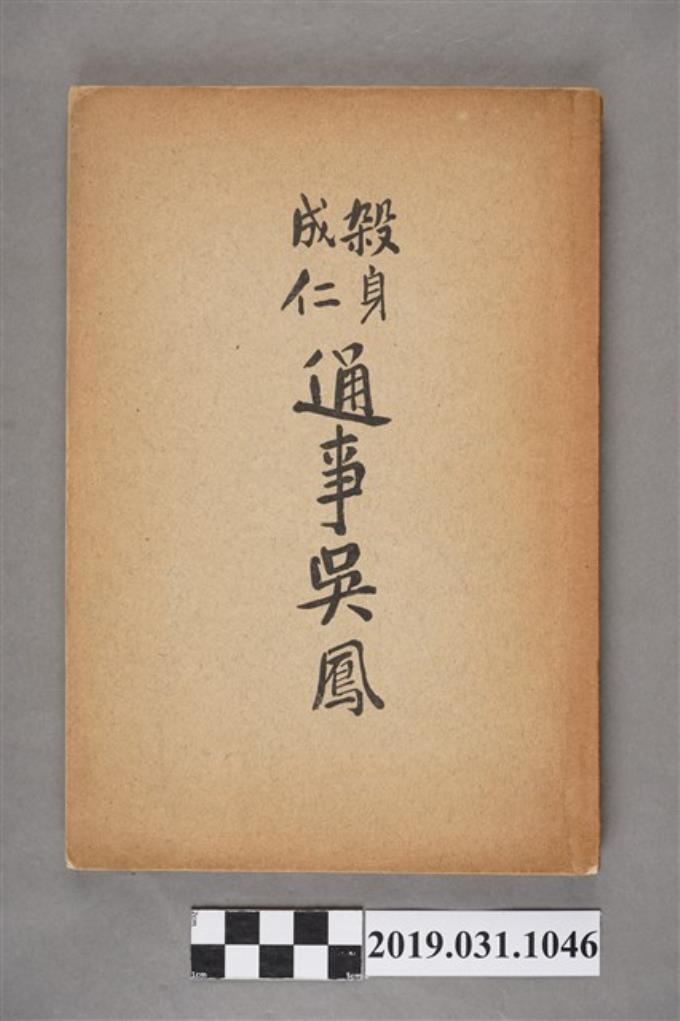 殺身
成仁
通事吳鳳
2019.031.1046